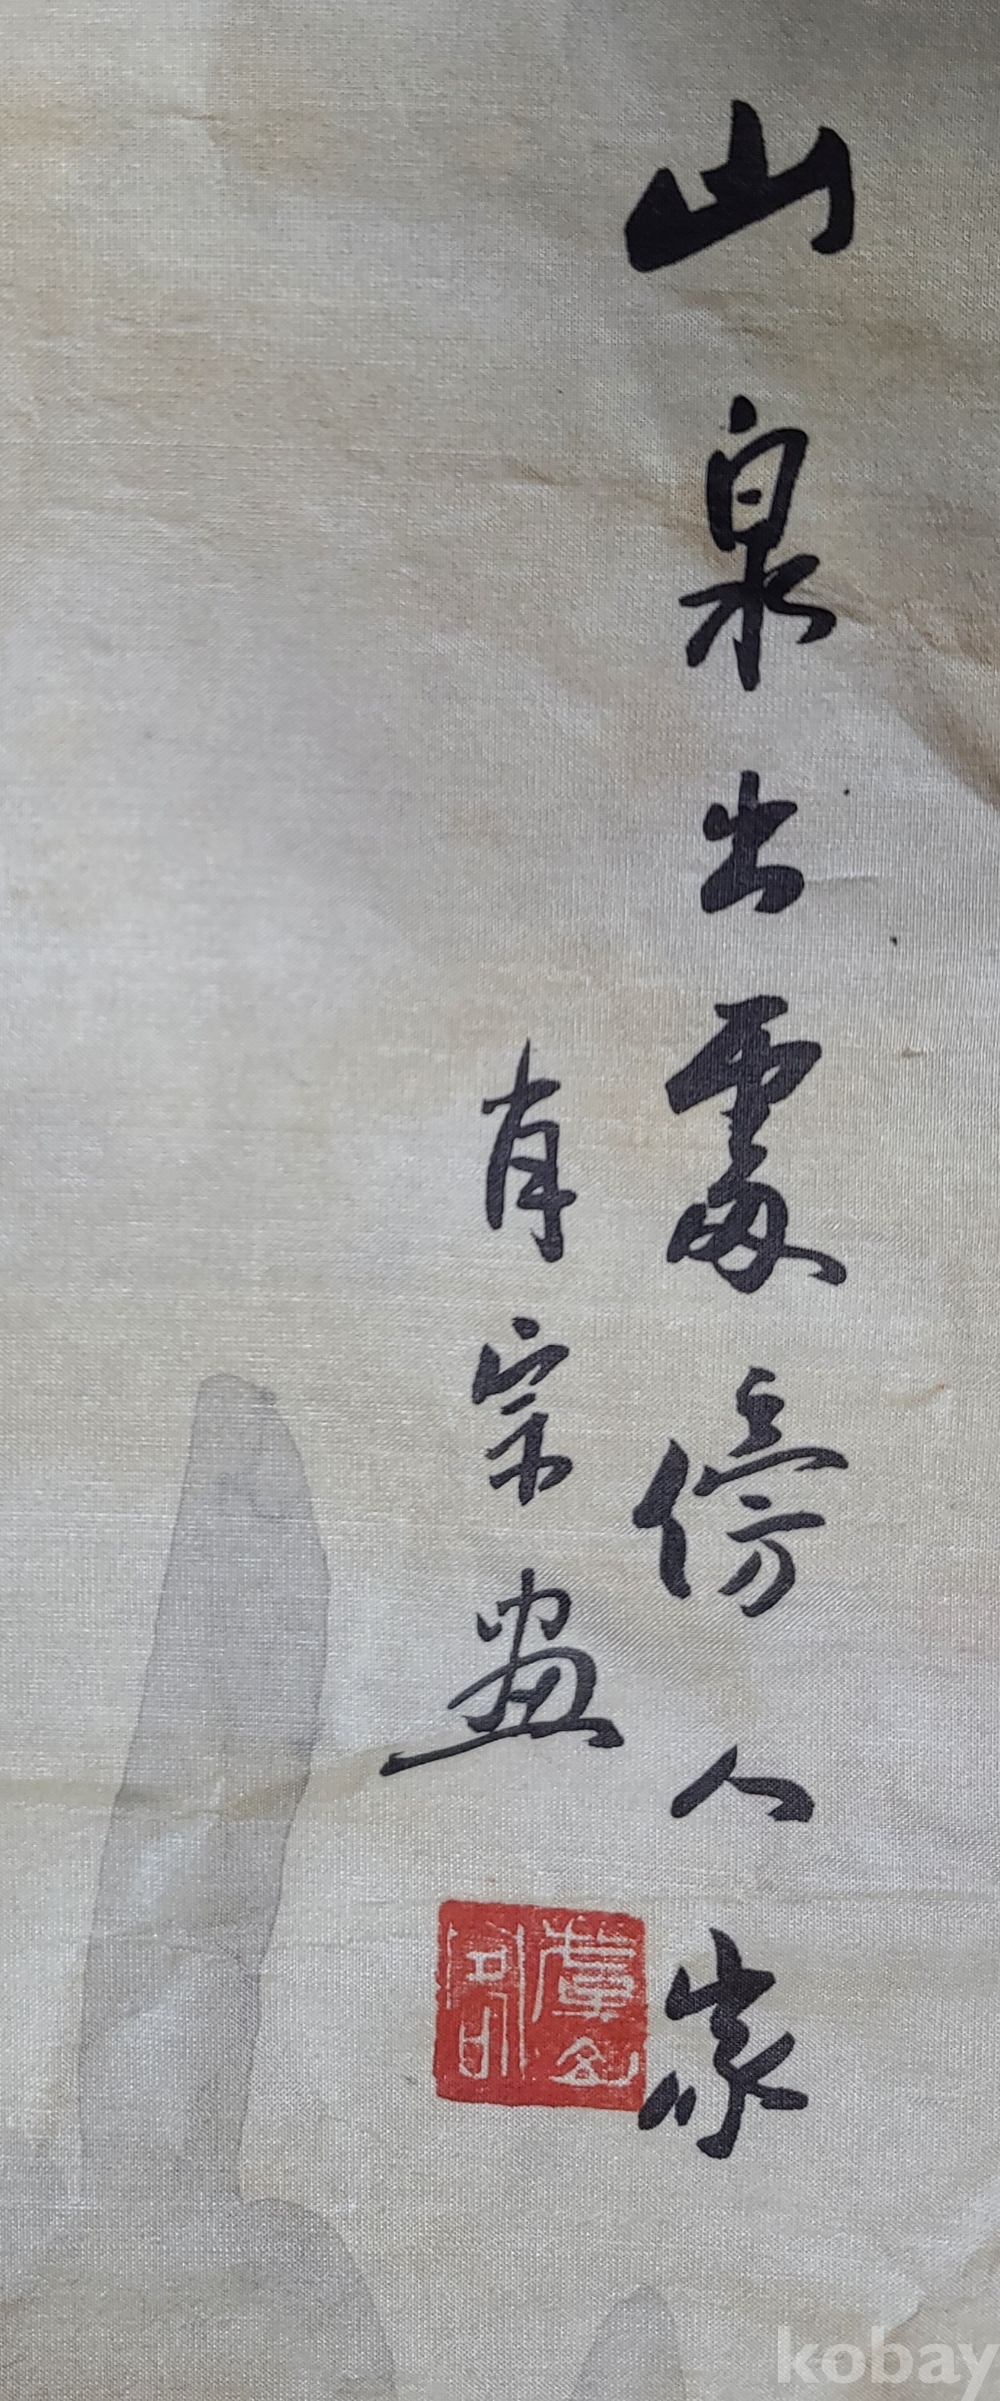 山泉出處傍人家
宗畫
kobay